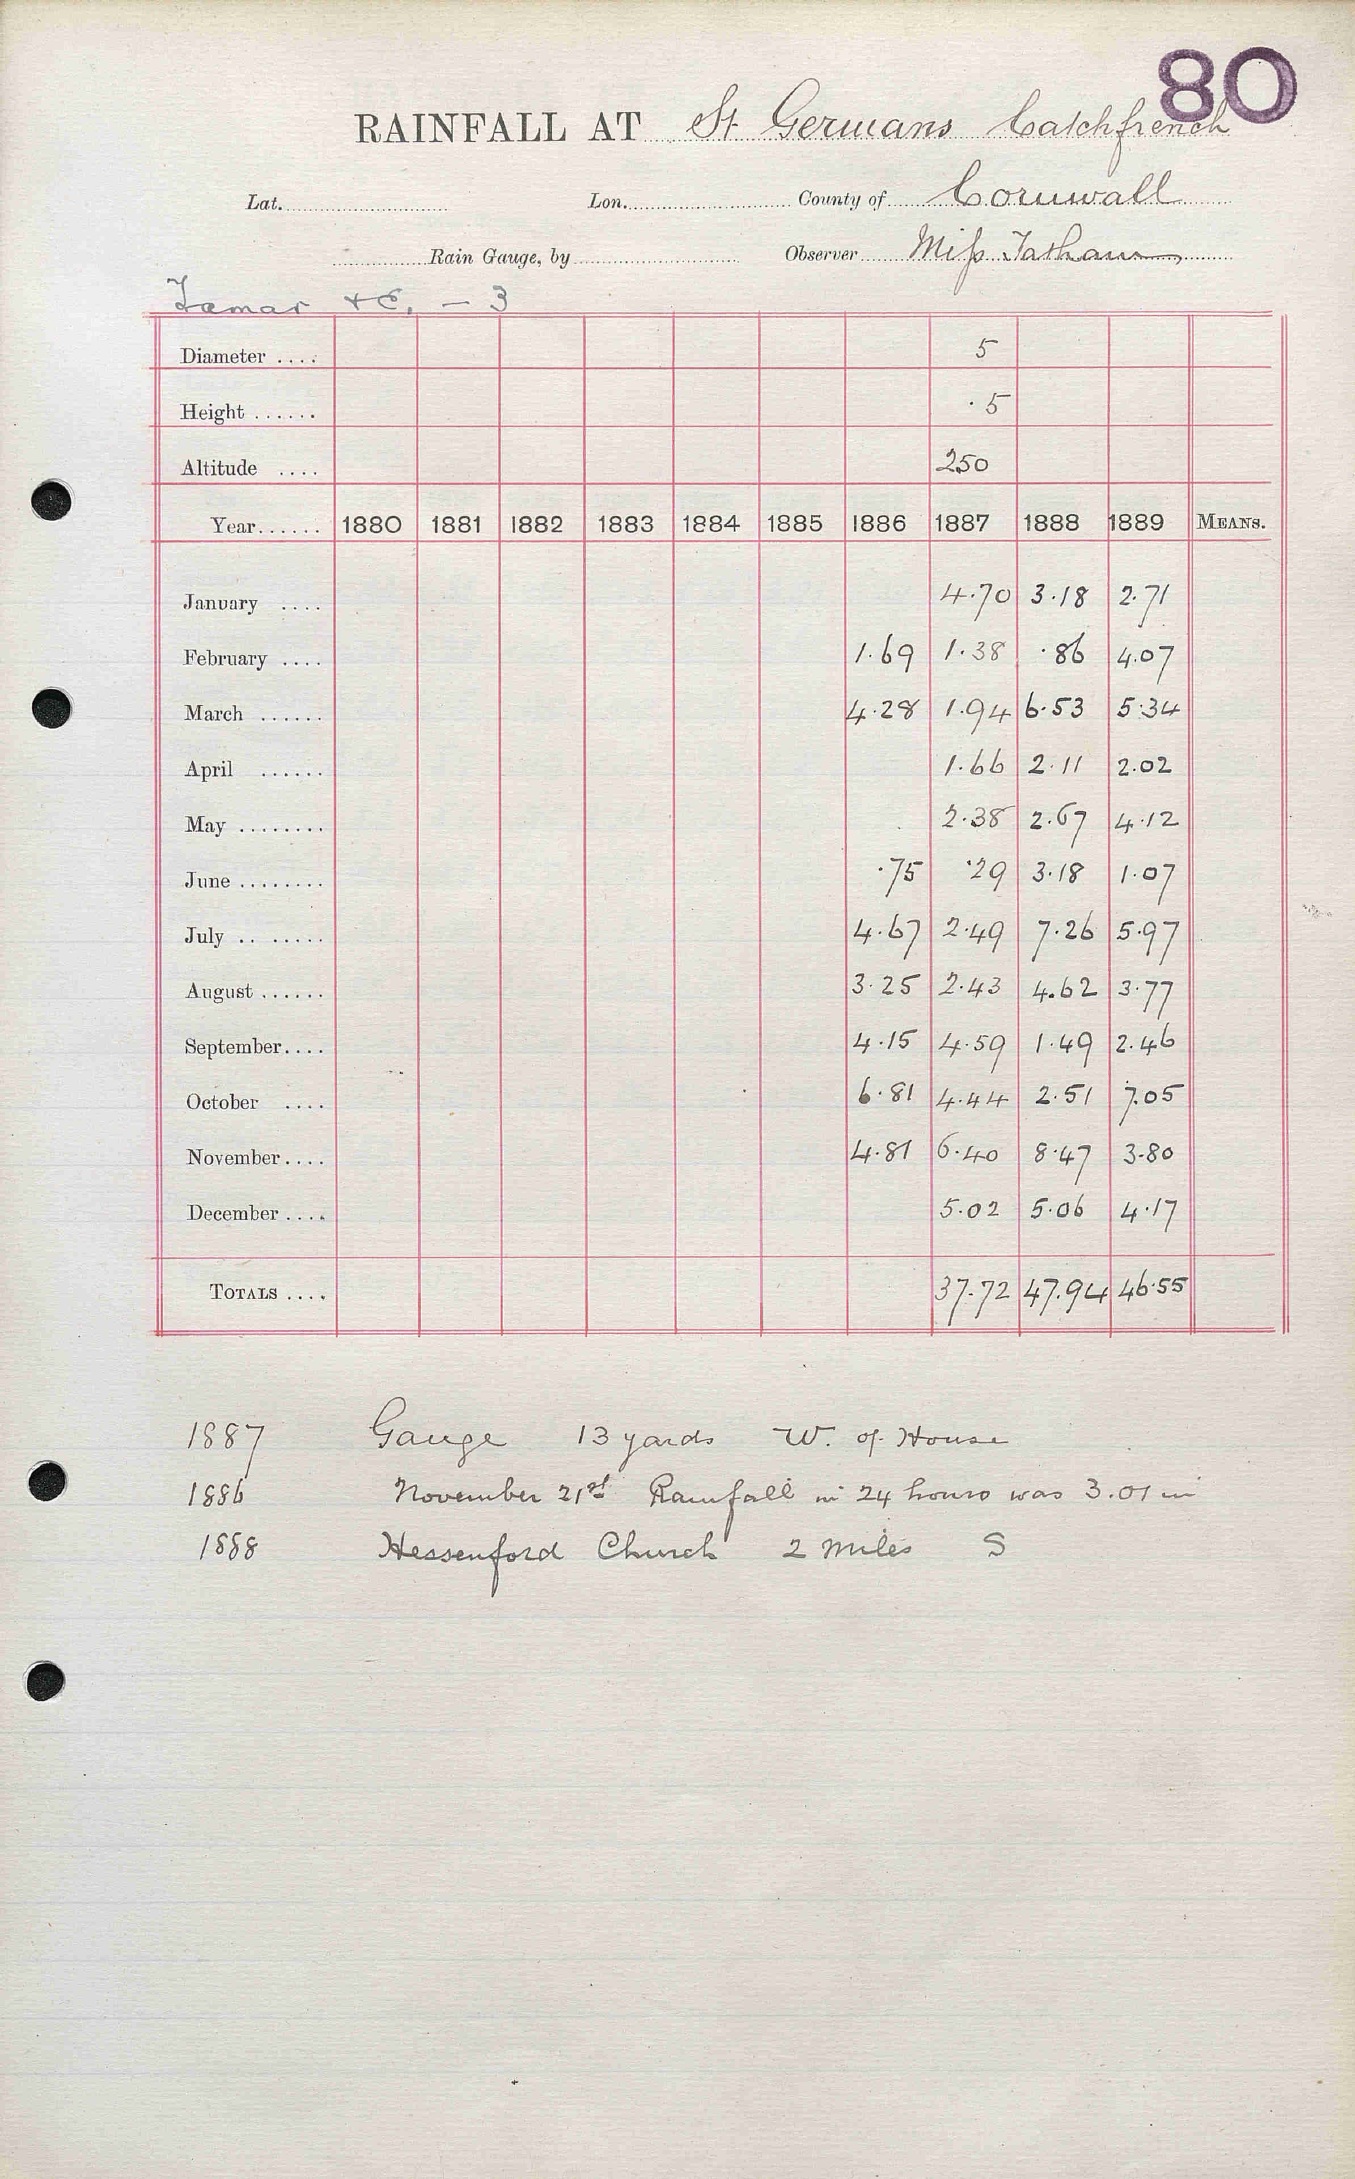 80
RAINFALL AT St Germans Catchfrench
Lat. Lon. County of Cornwall
Rain Gauge, by Observer Miss Tatham
Tamar &c. — 3
Diameter .... 5
Height ...... .5
Altitude .... 250
Year...... 1880 1881 1882 1883 1884 1885 1886 1887 1888 1889 MEANS.
January .... 4.70 3.18 2.71
February .... 1.69 1.38 .86 4.07
March ...... 4.28 1.94 6.53 5.34
April ...... 1.66 2.11 2.02
May ........ 2.38 2.67 4.12
June ........ .75 .29 3.18 1.07
July .. ...... 4.67 2.49 7.26 5.97
August ...... 3.25 2.43 4.62 3.77
September.... 4.15 4.59 1.49 2.46
October .... 6.81 4.44 2.51 7.05
November.... 4.81 6.40 8.47 3.80
December .... 5.02 5.06 4.17
TOTALS .... 37.72 47.94 46.55
1887 Gauge 13 yards W. of House
1886 November 21st Rainfall in 24 hours was 3.01 in
1888 Hessenford Church 2 miles S